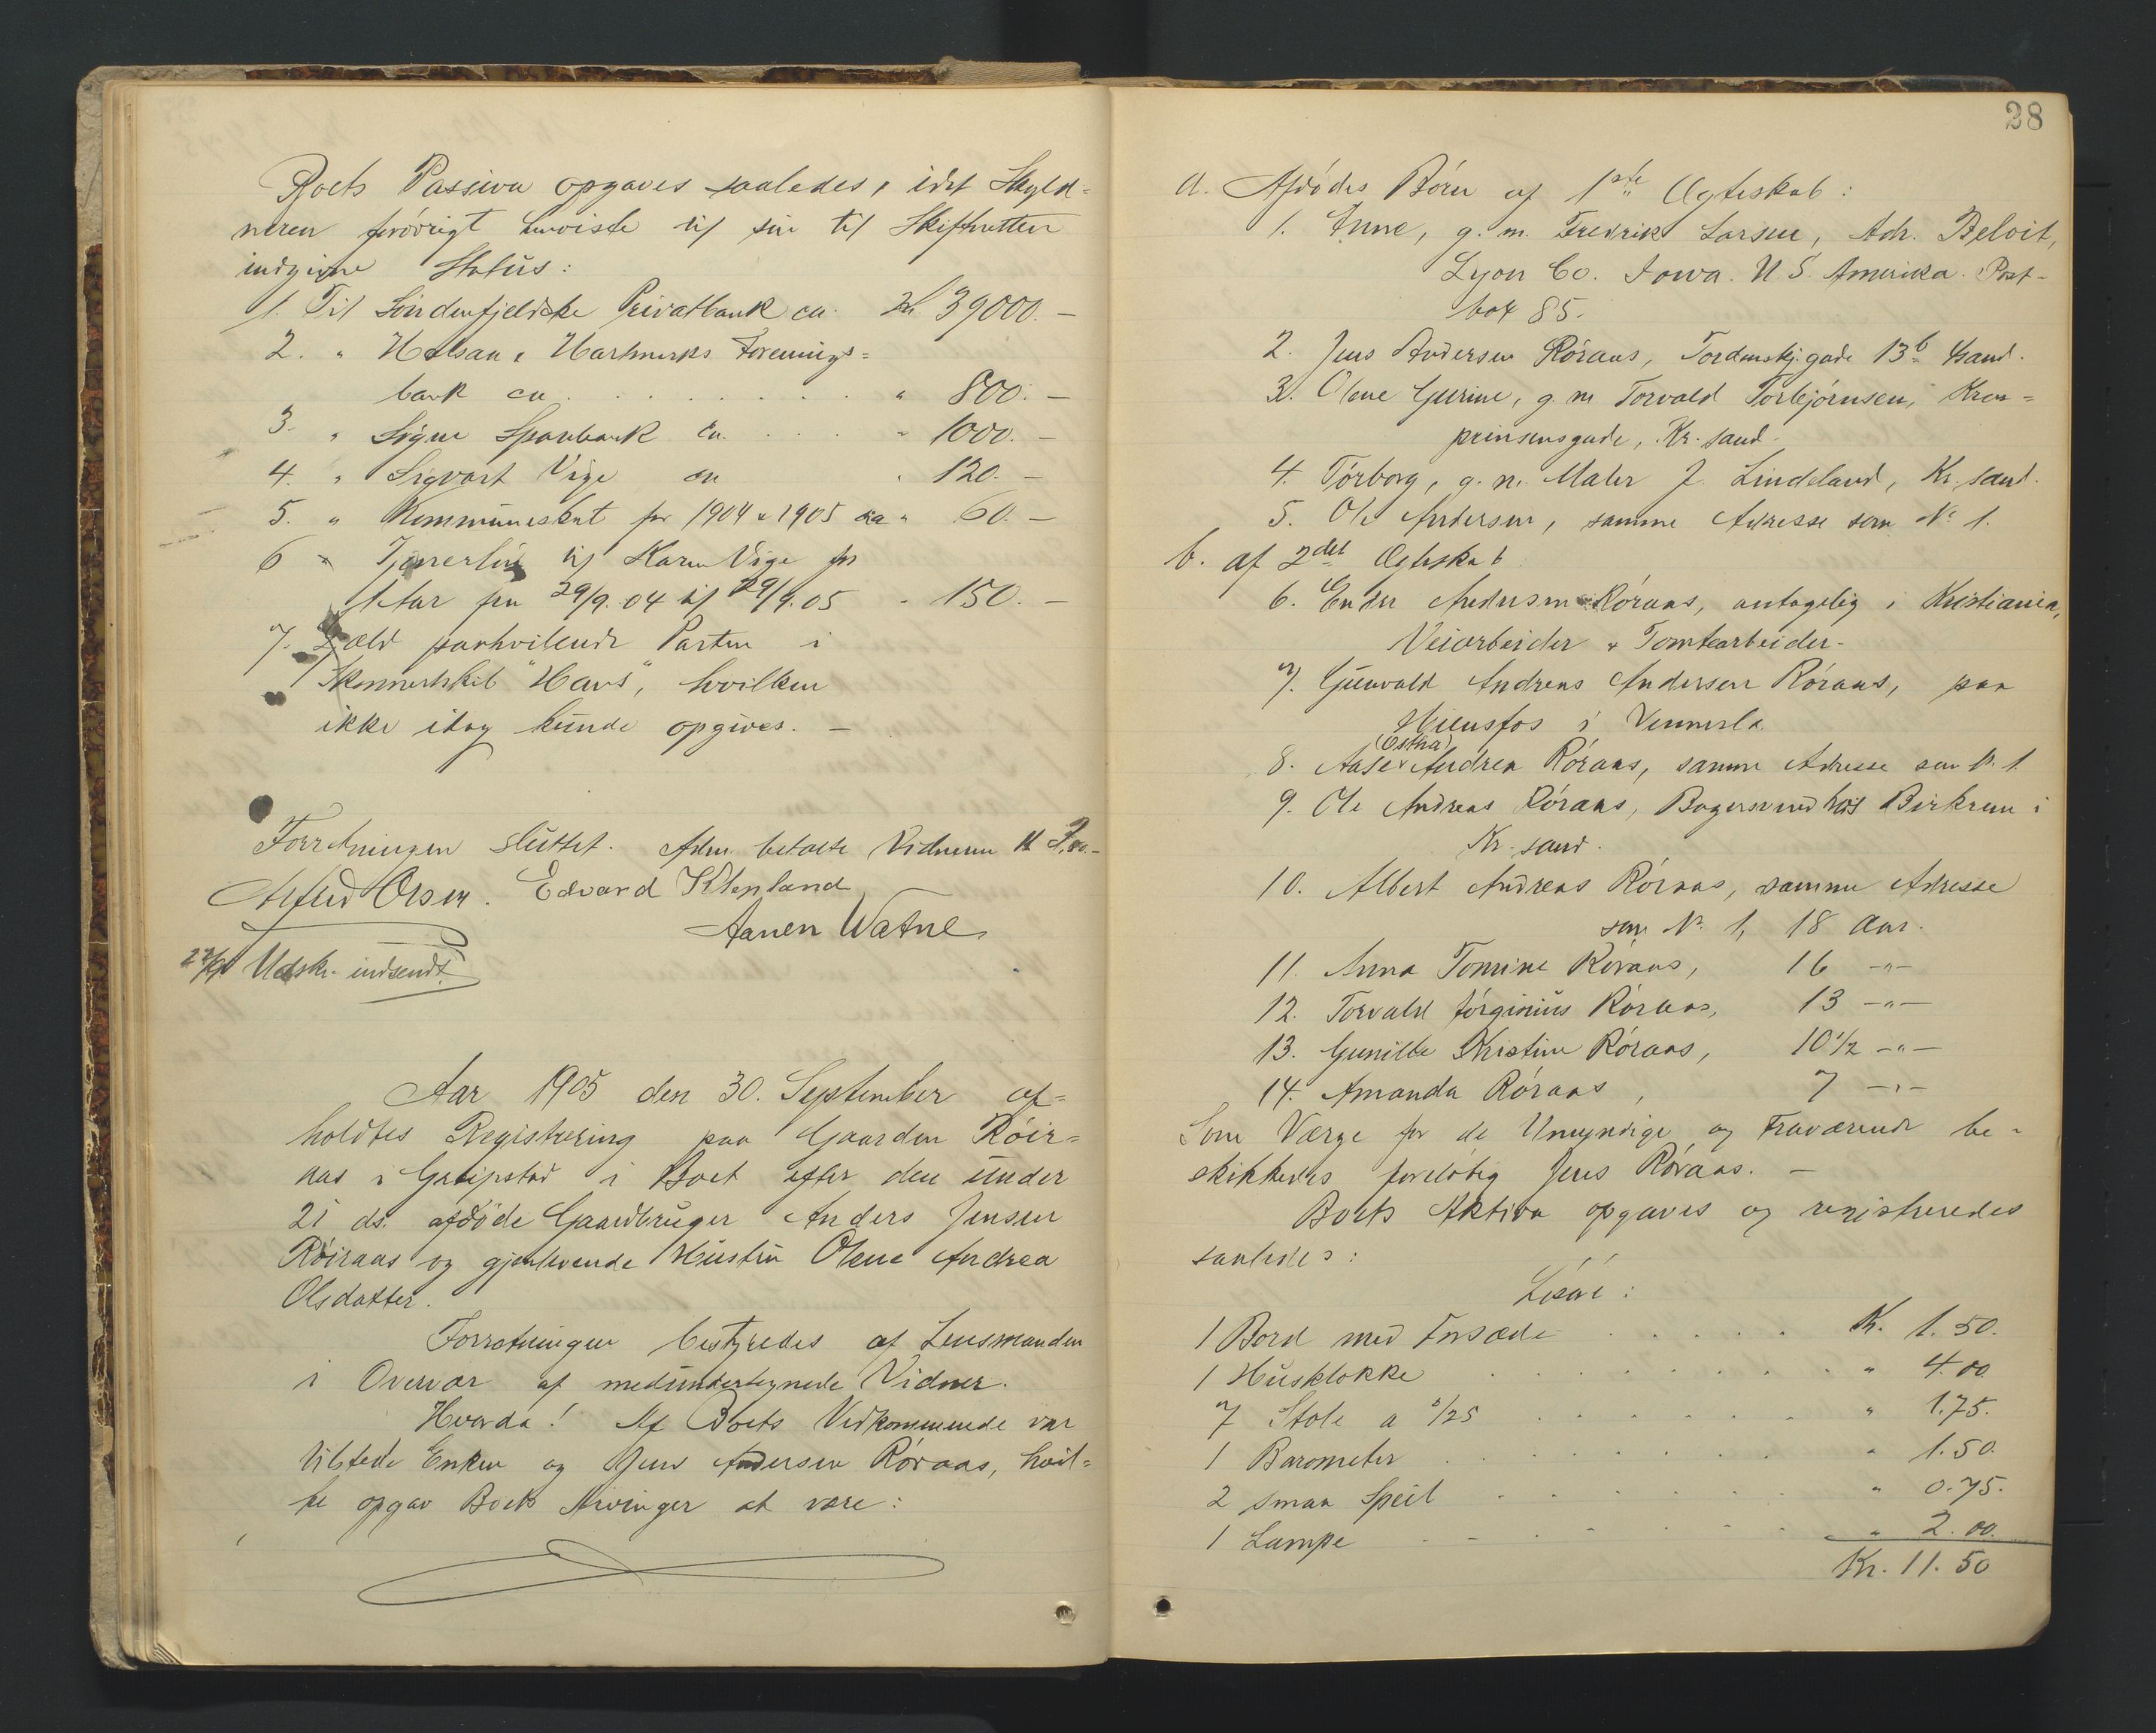 Boets Passiva opgaves saaledes, idet Skyld-
neren forøvrigt henviste til sin til Skifteretten
indgivne Status:
1. Til Søndenfjeldske Privatbank ca. Kr 39000.-
2. " Halsaa & Hartmarks Forenings=
bank ca. . . . . . . . " 800.-
3. " Søgne Sparebank ca. . . . " 1000.-
4. " Sigvart Vige ca " 120.-
5. " Kommuneskat for 1904 & 1905 ca " 60.-
6 " Tjenerløn til Karen Vige for
1 Aar fra 29/9.04 til 29/9.05 " 150.-
7. Gæld paahvilende Parten i
Skonnertskib "Hans", hvilken
ikke idag kunde opgives. -
Forretningen sluttet. Adm. betalte Vidnerne
Alfred Olsen. Edvard Klepland
Aanen Watne
Udskr. indsendt.
Aar 1905 den 30. September af=
holdtes Registrering paa Gaarden Røir=
aas i Greipstad i Boet efter den under
21 ds. afdøde Gaardbruger Anders Jensen
Røiraas og gjenlevende Hustru Olene Andrea
Olsdatter.
Forretningen bestyredes af Lensmanden
i Overvær af medundertegnede Vidner.
Hvorda! Af Boets Vedkommende var
tilstede Enken og Jens Andersen Róraas, hvil=
ke opgav Boets Arvinger at være:
28
a. Afdødes Børn af 1ste Ægteskab:
1. Anne, g. m. Fredrik Larsen, Adr. Beloit,
Lyon Co. Iowa. U. S. Amerika. Post-
box 85.
2. Jens Andersen Róraas, Tordenskj.gade 13b Krsand.
3. Olene Gurine, g. m Torvald Torbjørnsen, Kron=
prinsensgade, Kr. sand.
4. Tórborg, g. m. Maler J. Lindeland, Kr. sand.
5. Ole Andersen, samme Adresse som No 1.
b. af 2det Ægteskab
6. Ender Andersen Róraas, antagelig i Kristiania,
Veiarbeider & Tomtearbeider.
7. Gunvald Andreas Andersen Róraas, paa
Hunsfos i Vennesla
(Osthia)
8. Aase Andrea Róraas, samme Adresse som No. 1.
9. Ole Andreas Róraas, Bagersvend hos Birkrem i
Kr. sand.
10. Albert Andreas Róraas, samme Adresse
som No. 1, 18 Aar.
11. Anna Tomine Róraas, 16 -"-
12. Torvald Jørginius Róraas, 13 -"-
13. Gunille Kristine Róraas, 10 1/2 -"-
14. Amanda Róraas, 7 -"-
Som Værge for de Umyndige og Fraværende be-
skikkedes foreløbig Jens Róraas. -
Boets Aktiva opgaves og registreredes
saaledes:
Løsøre:
1 Bord med Forsæde . . . . . Kr. 1.50.
1 Husklokke . . . . . . " 4.00
7 Stole a 0/25 . . . . . . " 1.75.
1 Barometer . . . . . . " 1.50.
2 smaa Speil . . . . . . " 0.75.
1 Lampe . . . . . . " 2.00.
Kr. 11.50